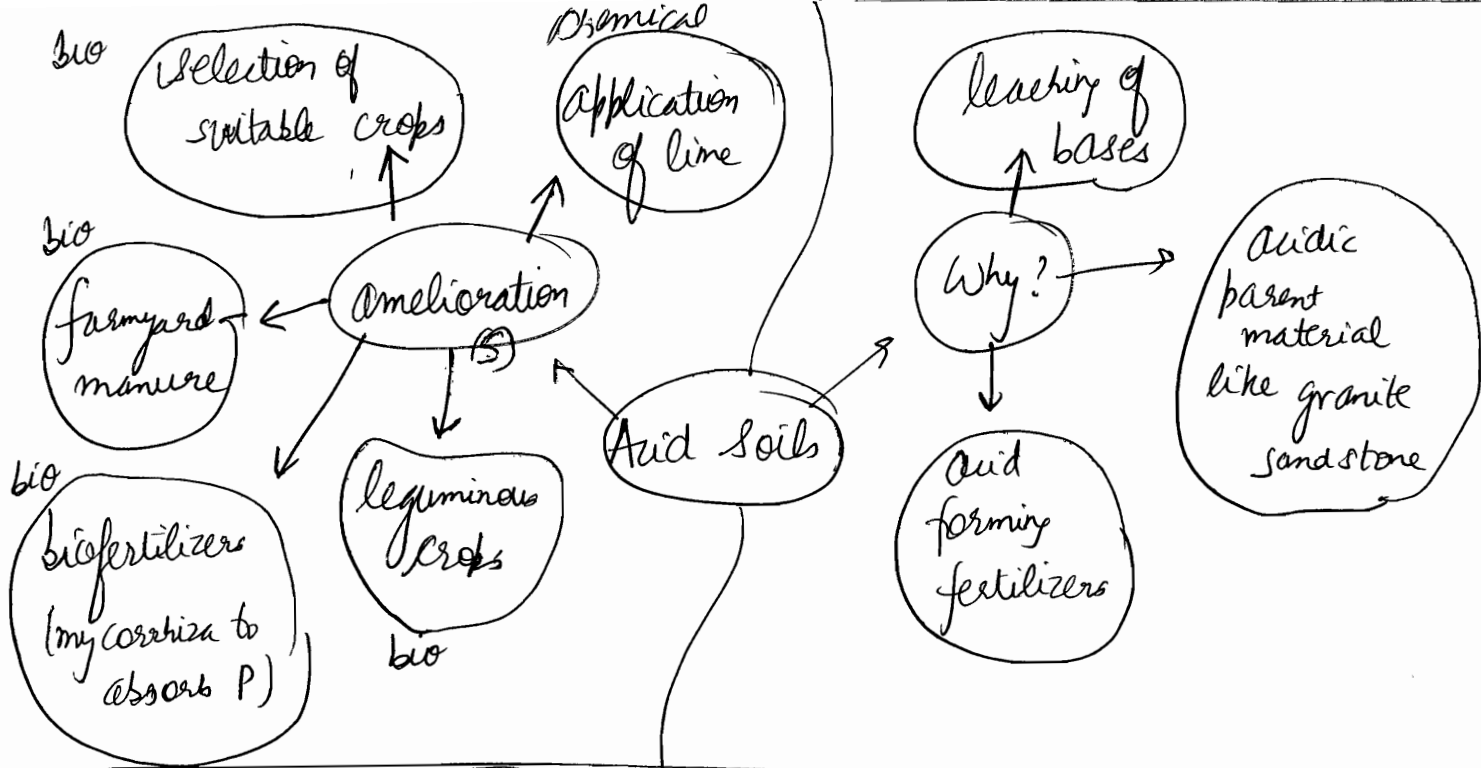 bio
selection of
suitable crops
Chemical
application
of lime
leaching of
bases
bio
farmyard
manure
amelioration
5
Why?
acidic
parent
material
like granite
sandstone
Acid Soils
bio
biofertilizers
(mycorrhiza to
absorb P)
leguminous
crops
bio
acid
forming
fertilizers